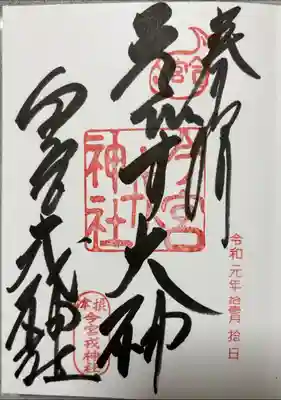 奉拝
す大神
今宮戎神社
今宮戎神社
令和元年拾壹月拾日
今宮戎神社